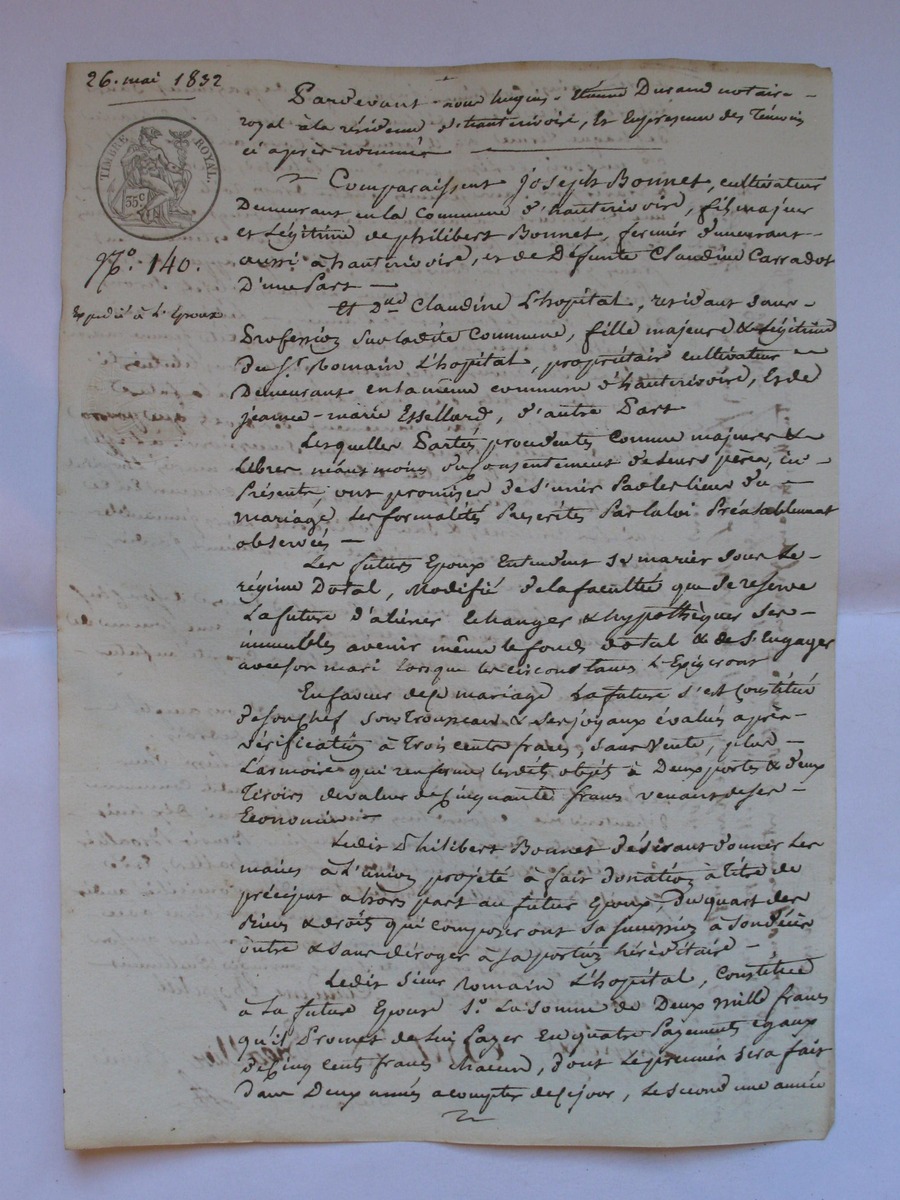 26. mai 1832
TIMBRE ROYAL.
35 c
N.º 140.
Expédié à l'Epoux
Pardevant nous hugues-Etienne Durand notaire
royal à la résidence d'hauterivoire, Et En présence des Témoins
ci après nommés
Comparaissent Joseph Bonnet, cultivateur
Demeurant en la Commune d'hauterivoire, fils majeur
et Légitime de philibert Bonnet, fermier demeurant
aussi à hauterivoire, et de Défunte Claudine Carradot
D'une Part
Et D.lle Claudine L'hopital, residant sans
Profession sur ladite Commune, fille majeure & Légitime
du S.r Romain L'hopital, propriétaire cultivateur
Demeurant en la même commune d'hauterivoire, Et de
jeanne-marie Essellard, d'autre Part
Lesquelles Parties procedantes comme majeures &
Libres néanmoins du Consentement de leurs pères, ici
Présents, ont promises de s'unir Par les liens du
mariage Les formalités Prescrites Par la loi Préalablement
observées
Les futurs Epoux Entendent se marier sous le
régime Dotal, Modifié de la faculté que se reserve
La future d'aliéner Echanger & hypothèquer ses
immeubles avenir même le fonds dotal & de s'Engager
avec son mari lorsque les circonstances L'Exigeront
En faveur de ce mariage La future s'est Constitué
de son chef son Trousseau & ses joyaux évalués après
vérification à Trois cents francs, sans vente, plus
L'armoire qui renferme lesdits objets à Deux portes & deux
Tiroirs de valeur de Cinquante francs venant de ses
Economies
Ledit Philibert Bonnet désirant donner les
mains à L'union projeté à fait donation à titre de
préciput & hors part au futur Epoux, du quart des
Biens & droits qui composeront sa succession à son décès
outre & sans déroger à sa portion héréditaire
Ledit sieur Romain L'hopital, Constitue
à La future Epouse 1.º La somme de Deux mille francs
qu'il Promet de lui Payer En quatre Payements égaux
de Cinq cents francs chacun, dont Le premier sera fait
dans Deux années à compter de ce jour, Le second une année